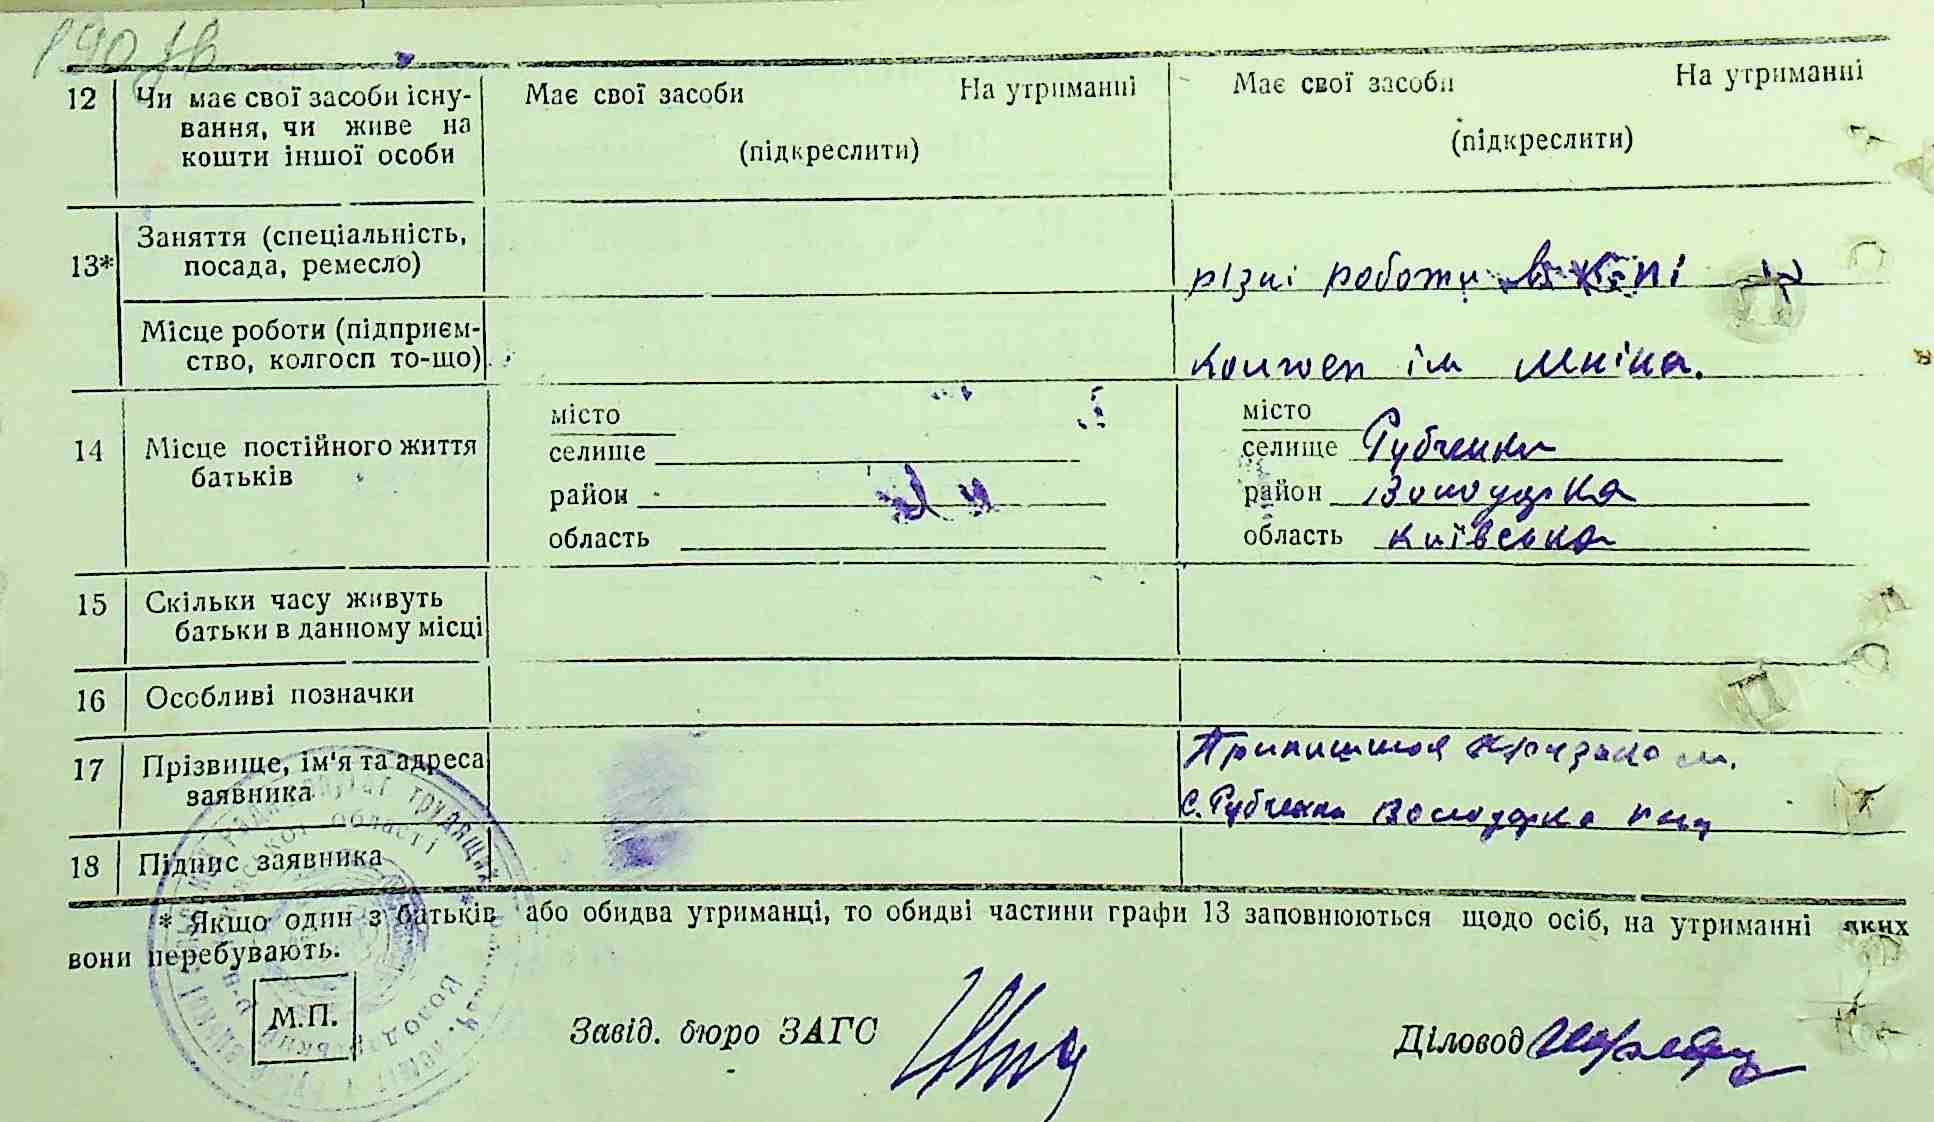 190 зв
12 Чи має свої засоби існу- Має свої засоби На утриманні Має свої засоби На утриманні
вання, чи живе на (підкреслити) (підкреслити)
кошти іншої особи
Заняття (спеціальність,
13* посада, ремесло) різні роботи в
Місце роботи (підприєм-
ство, колгосп то-що) колгосп ім Леніна.
місто місто
14 Місце постійного життя селище селище Рубченки
батьків район район Володарка
область область Київська
15 Скільки часу живуть
батьки в данному місці
16 Особливі позначки
17 Прізвище, ім'я та адреса
заявника с. Рубченки Володарка
18 Підпис заявника
* Якщо один з батьків або обидва утриманці, то обидві частини графи 13 заповнюються щодо осіб, на утриманні яких
вони перебувають.
М.П. Завід. бюро ЗАГС Діловод